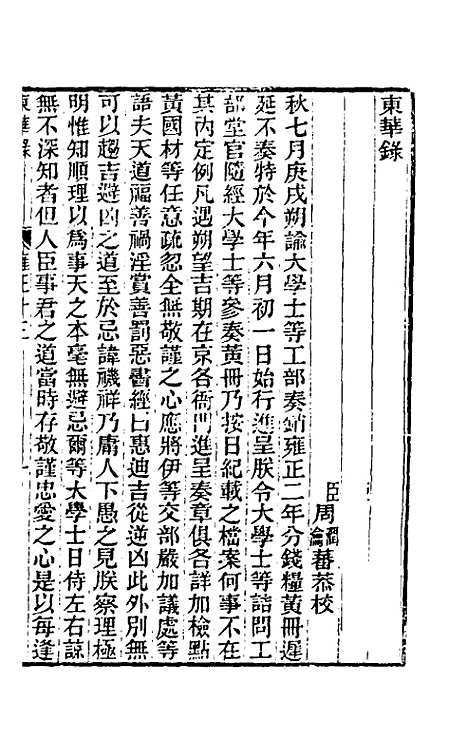 東華錄
臣周潤瀹蕃恭校
秋七月庚戌朔諭大學士等工部奏銷雍正二年分錢糧黃冊遲
延不奏特於今年六月初一日始行進呈朕令大學士等詰問工
部堂官隨經大學士等參奏黃冊乃按日紀載之檔案何事不在
其內定例凡遇朔望吉期在京各衙門進呈奏章俱各詳加檢點
黃國材等任意疏忽全無敬謹之心應將伊等交部嚴加議處等
語夫天道福善禍淫賞善罰惡書經曰惠迪吉從逆凶此外別無
可以趨吉避凶之道至於忌諱禨祥乃庸人下愚之見朕察理極
明惟知順理以爲事天之本毫無避忌爾等大學士日侍左右諒
無不深知者但人臣事君之道當時存敬謹忠愛之心是以每逢
東華錄